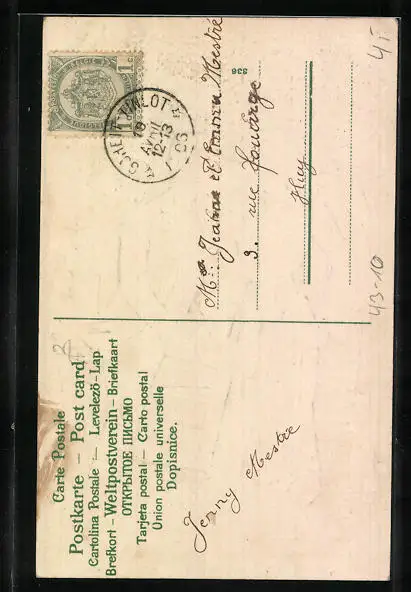 Carte Postale
Postkarte – Post card
Cartolina Postale – Levelező-Lap
Brefkort – Weltpostverein – Briefkaart
ОТКРЫТОЕ ПИСЬМО
Tarjeta postal – Carto postal
Union postale universelle
Dopisnice.
Jenny Mestré
1 C
18
AVRIL
12-13
336
Jeanne et Emma Mestré
3. rue
Huy
45
43-10